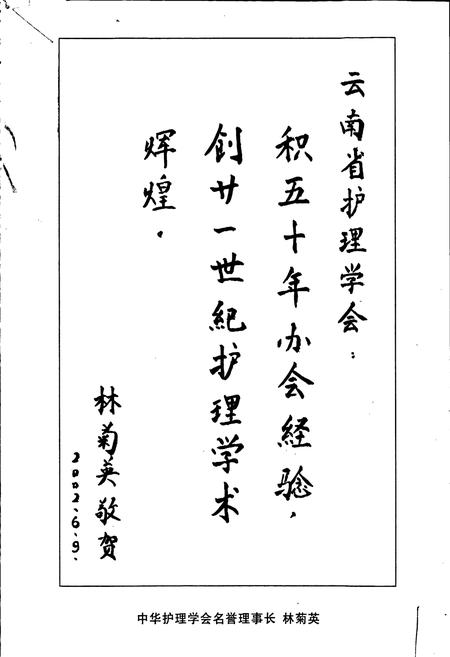 云南省护理学会：
积五十年办会经验，
创廿一世纪护理学术
辉煌。
林菊英敬贺
2002.6.9.
中华护理学会名誉理事长 林菊英